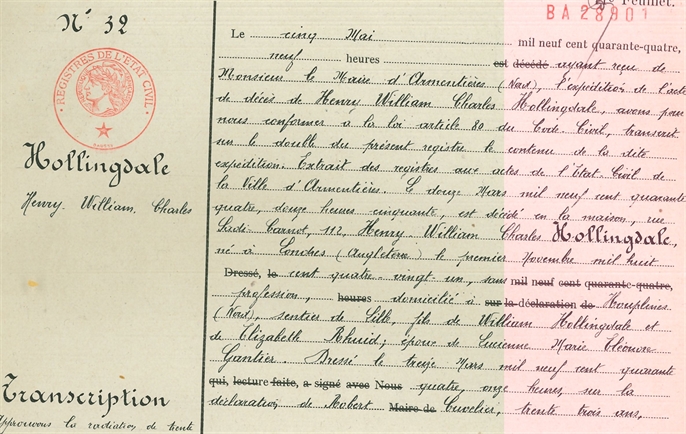 Feuillet.
BA 28901
N° 32
REGISTRES DE L'ÉTAT CIVIL
Hollingdale
Henry. William. Charles
Transcription
Approuvons la radiation de trente
Le cinq Mai mil neuf cent quarante-quatre,
neuf heures est décédé ayant reçu de
Monsieur le Maire d'Armentières (Nord), l'expédition de l'acte
de décès de Henry William Charles Hollingdale, avons pour
nous conformer à la loi article 80 du Code Civil, transcrit
sur le double du présent registre le contenu de la dite
expédition. Extrait des registres aux actes de l'Etat Civil de
la Ville d'Armentières. Le douze Mars mil neuf cent quarante
quatre, douze heures cinquante, est décédé en la maison, rue
Sadi Carnot, 112, Henry. William Charles Hollingdale,
né à Londres (Angleterre) le premier Novembre mil huit
Dressé, le cent quatre-vingt-un, sans mil neuf cent quarante-quatre,
profession, heures domicilié à sur la déclaration de Houplines
(Nord), sentier de Lille, fils de William Hollingdale et
de Elizabeth Rhuid; époux de Lucienne Marie Eléonore
Gantier. Dressé le treize Mars mil neuf cent quarante
qui, lecture faite, a signé avec Nous quatre, onze heures, sur la
déclaration de Robert Maire de Cuvelier, trente trois ans,